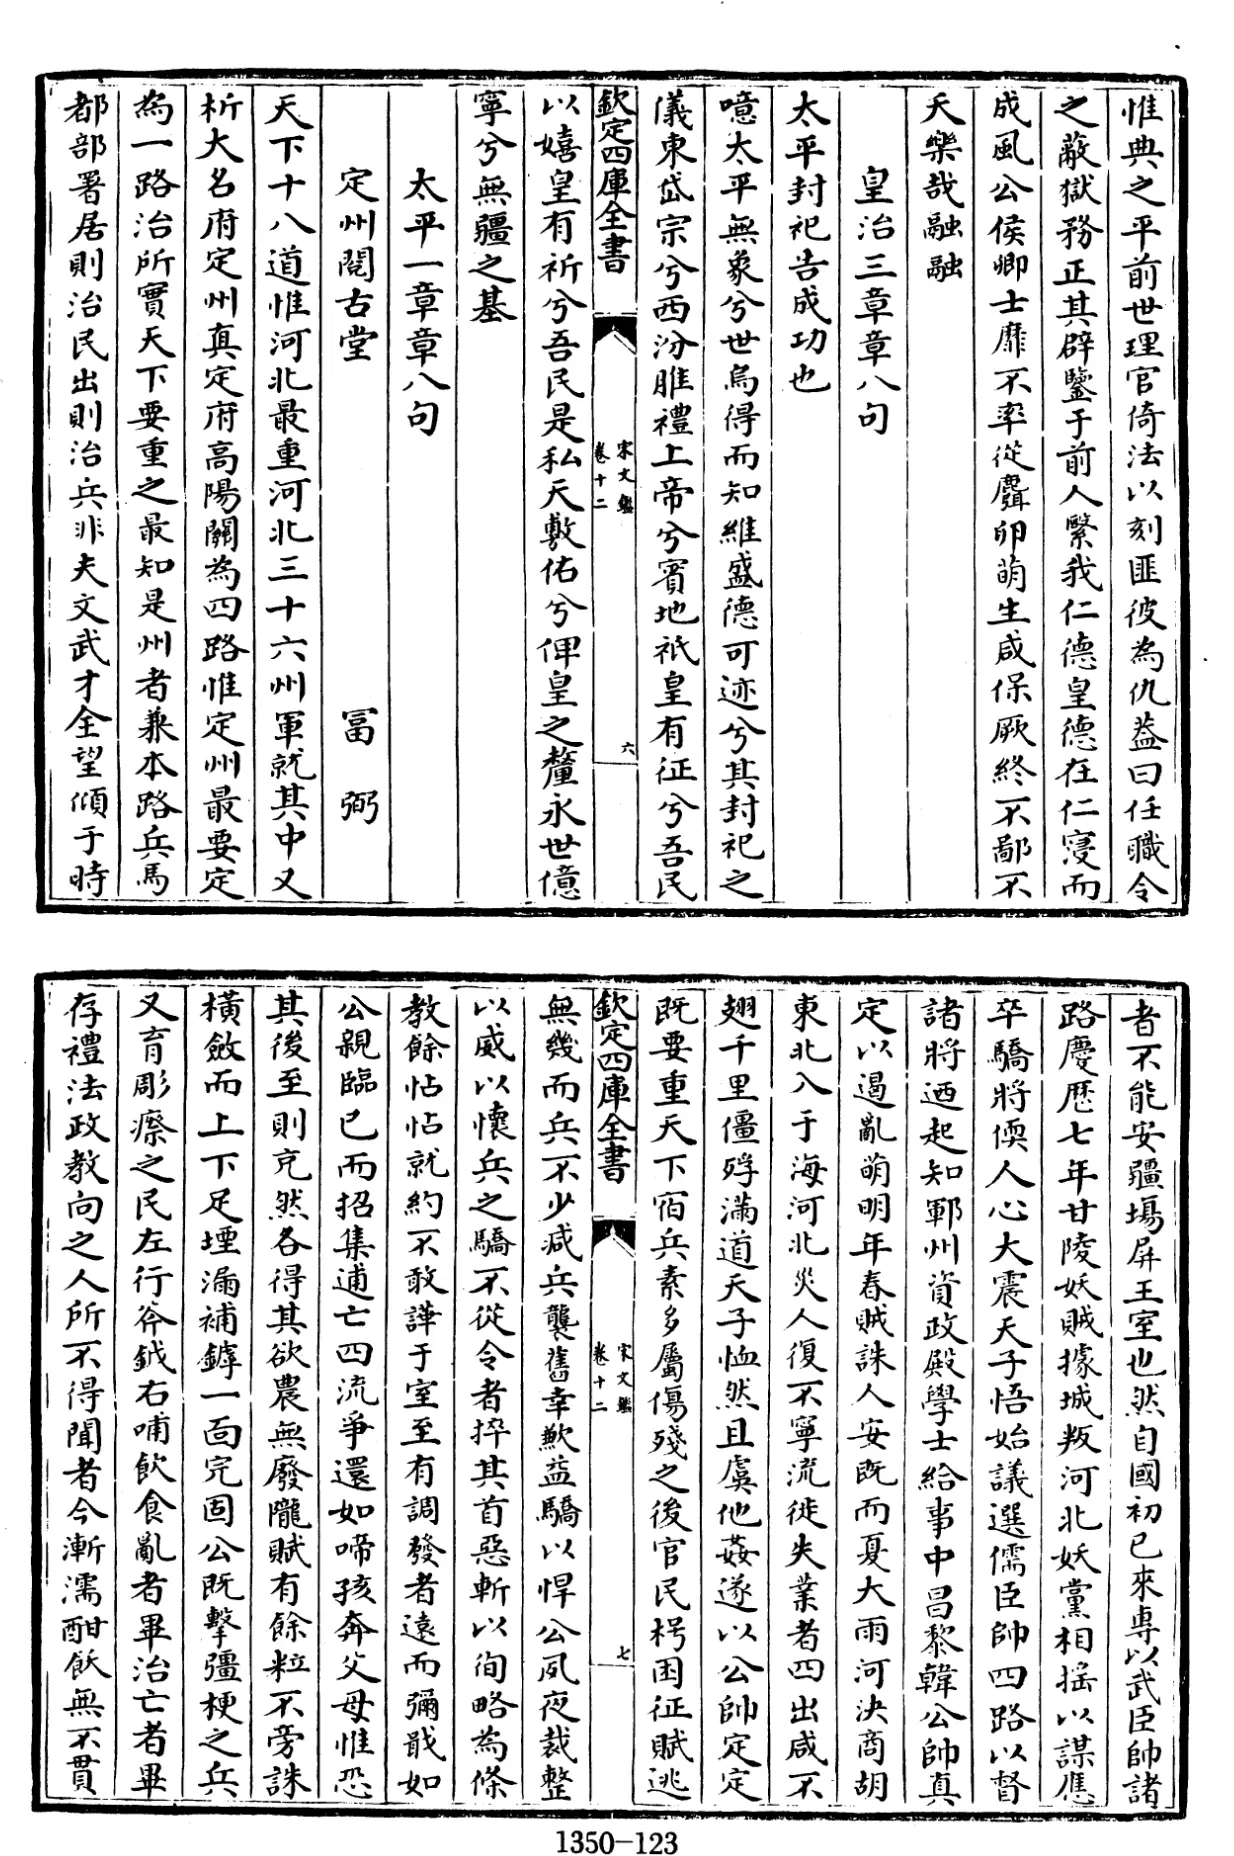 惟典之平前世理官倚法以刻匪彼為仇葢曰任職令
之蔽獄務正其辟鑒于前人繄我仁德皇德在仁寖而
成風公侯卿士靡不率從鷇卵萌生咸保厥終不鄙不
夭樂哉融融
皇治三章章八句
太平封祀告成功也
噫太平無象兮世烏得而知維盛德可迹兮其封祀之
儀東岱宗兮西汾脽禮上帝兮賓地祇皇有征兮吾民
欽定四庫全書
宋文鑑
卷十二
六
以嬉皇有祈兮吾民是私天敷佑兮俾皇之釐永世億
寧兮無疆之基
太平一章章八句
定州閱古堂 富弼
天下十八道惟河北最重河北三十六州軍就其中又
析大名府定州真定府高陽關為四路惟定州最要定
為一路治所實天下要重之最知是州者兼本路兵馬
都部署居則治民出則治兵非夫文武才全望傾于時
者不能安疆場屏王室也然自國初已來専以武臣帥諸
路慶歷七年甘陵妖賊據城叛河北妖黨相揺以謀應
卒驕將偄人心大震天子悟始議選儒臣帥四路以督
諸將迺起知鄆州資政殿學士給事中昌黎韓公帥真
定以遏亂萌明年春賊誅人安既而夏大雨河決商胡
東北入于海河北災人復不寧流徙失業者四出咸不
翅千里僵殍滿道天子恤然且虞他姦遂以公帥定定
既要重天下宿兵素多屬傷殘之後官民枵困征賦逃
欽定四庫全書
宋文鑑
卷十二
七
無幾而兵不少减兵襲舊幸歉益驕以悍公夙夜裁整
以威以懷兵之驕不從令者捽其首惡斬以徇略為條
教餘怗怗就約不敢譁于室至有調發者遠而彌戢如
公親臨已而招集逋亡四流爭還如啼孩奔父母惟恐
其後至則充然各得其欲農無廢隴賦有餘粒不旁誅
橫斂而上下足堙漏補罅一靣完固公既擊彊梗之兵
又育彫瘵之民左行斧鉞右哺飲食亂者畢治亡者畢
存禮法政教向之人所不得聞者今漸濡酣飫無不貫
1350-123